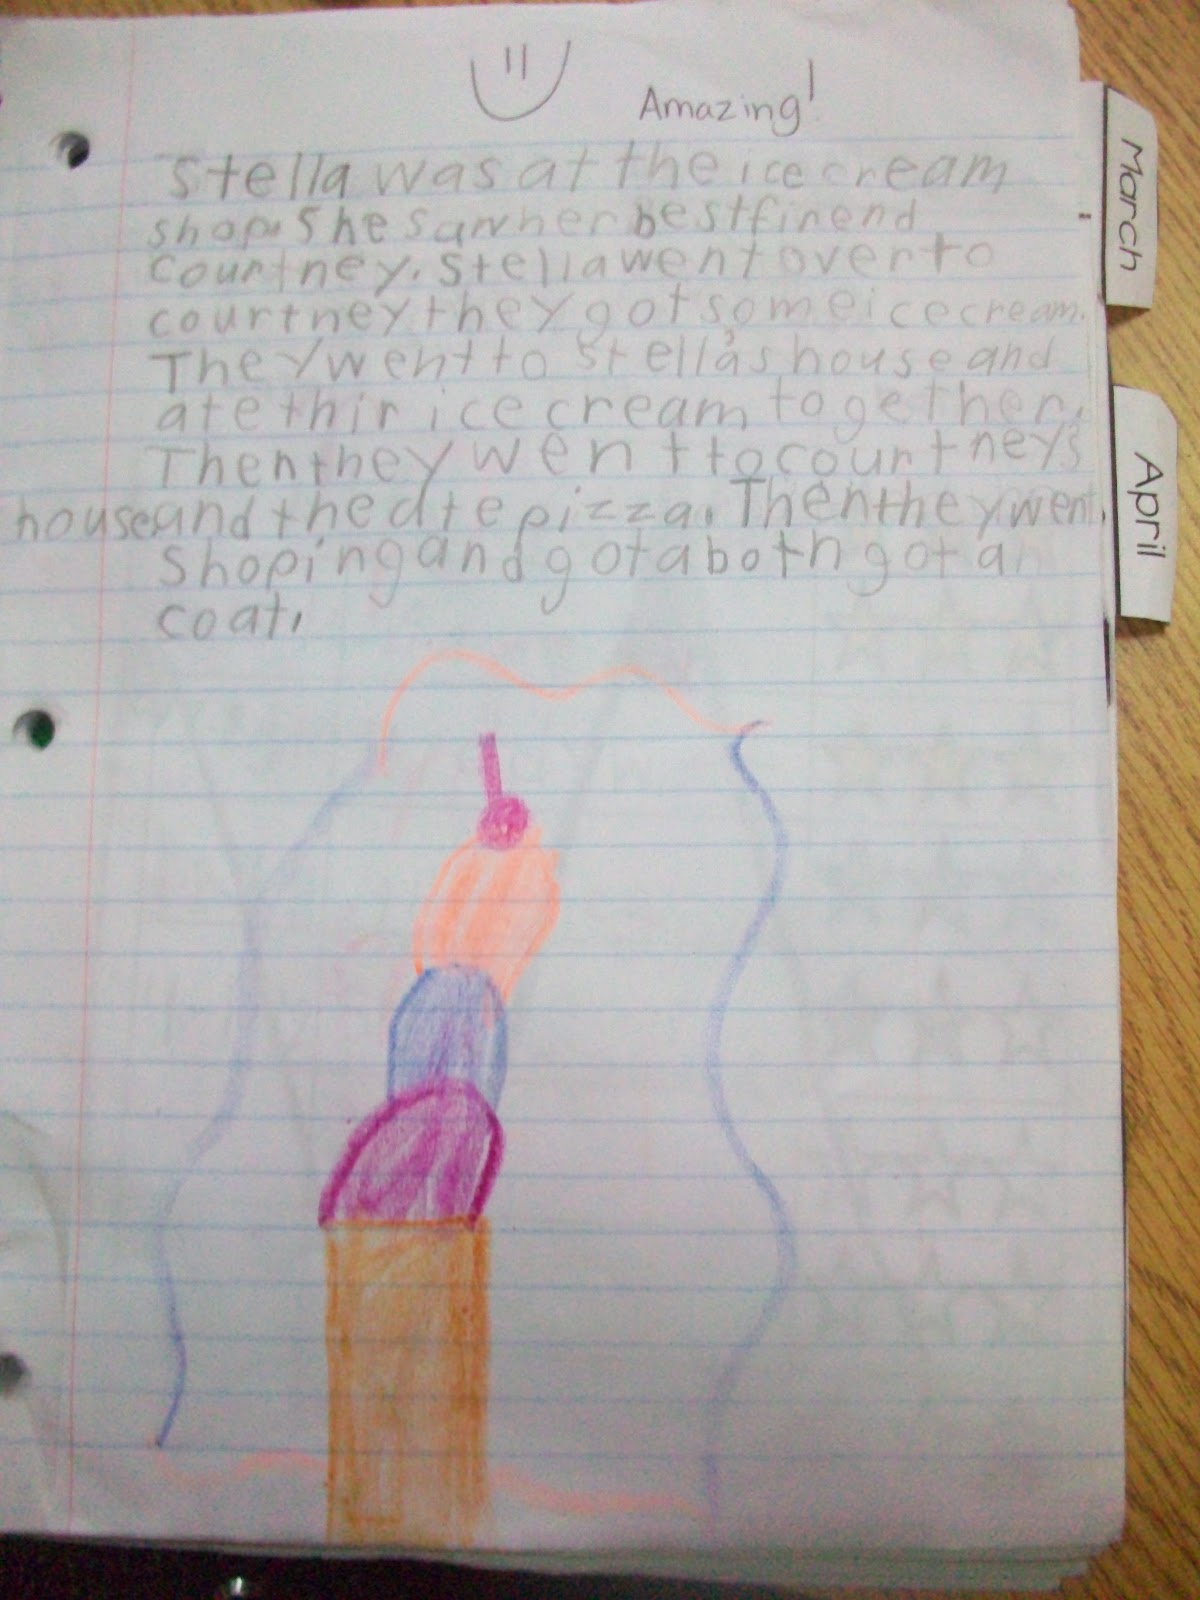 Amazing!
Stella was at the ice cream
shop. She saw her best firend
courtney. Stella went over to
courtney they got some ice cream.
They went to Stella's house and
ate thir ice cream together.
Then they went to courtney's
house and the ate pizza. Then they went
shoping and got a both got a
coat.
March
April